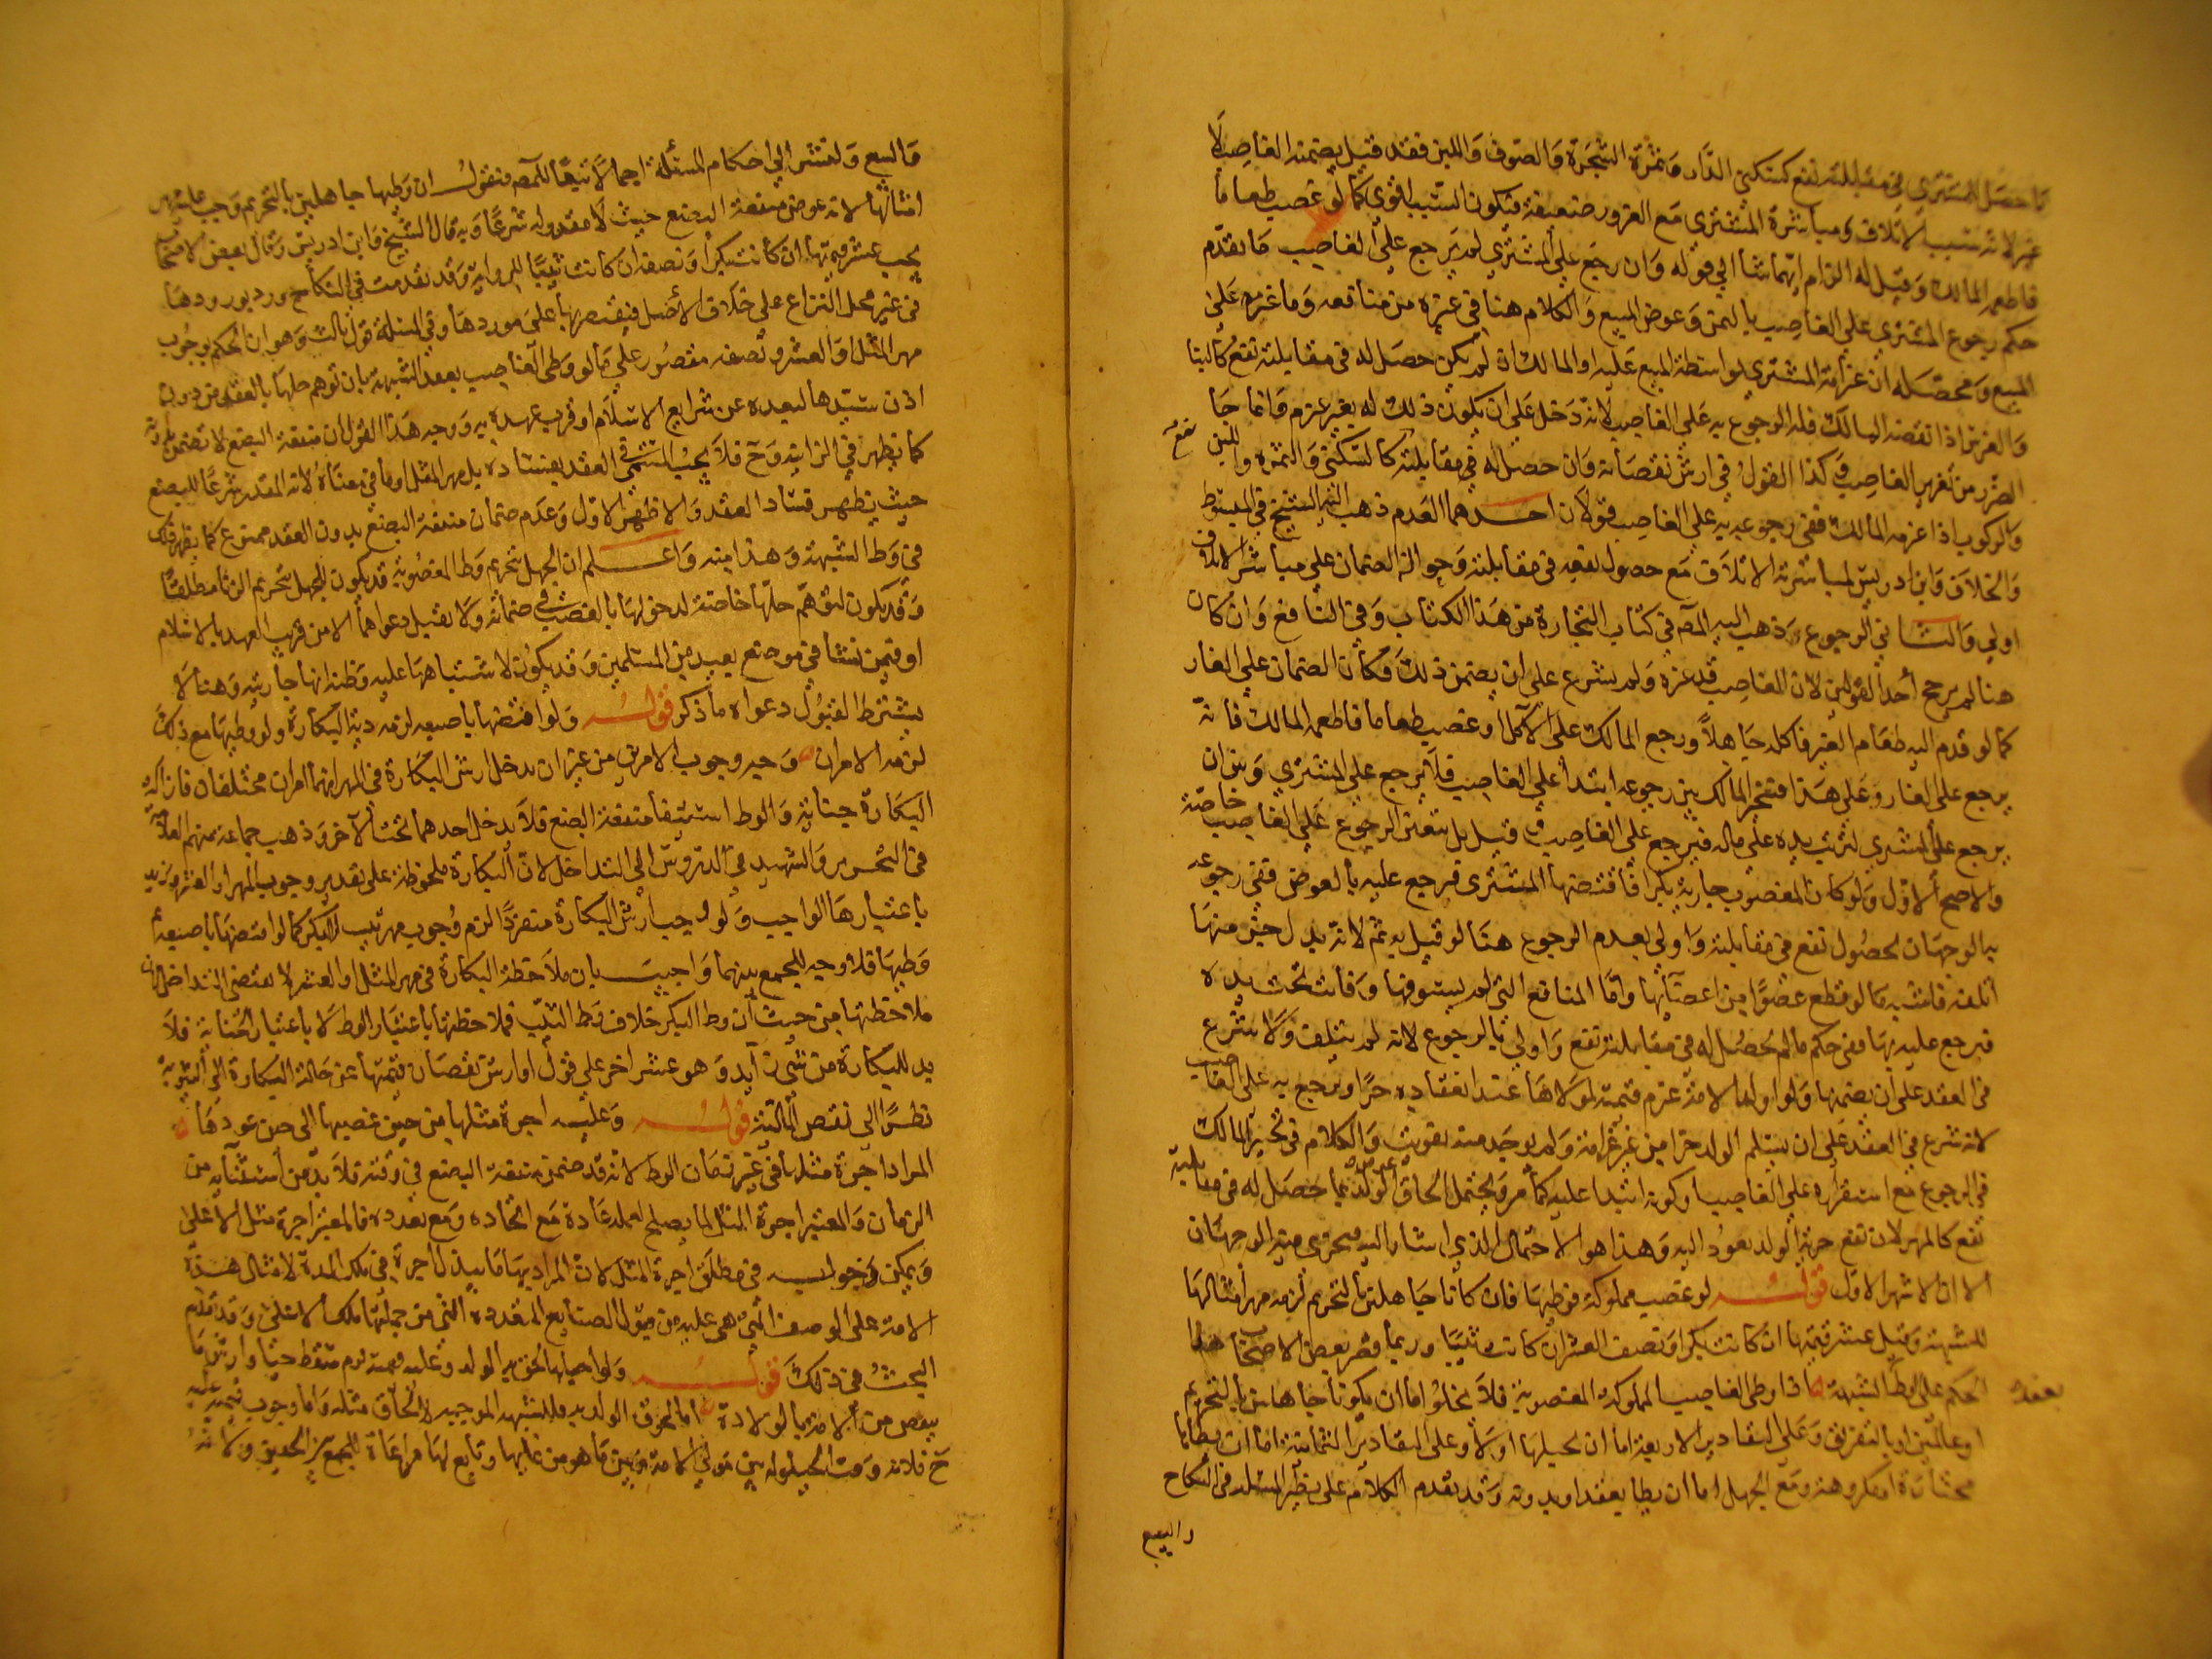 ما حصل للمشتري في مقابلته نفع كسكنى الدار وثمرة الشجرة والصوف واللبن فقد قيل يضمنه الغاصب لا
غير لانه سبب الاتلاف ومباشرة المشتري مع الغرور ضعيفة فيكون السبب اقوى كما لو غصب طعاما
فاطعمه المالك وقيل له الزام ايهما شا الي قوله وان رجع علي المشتري لم يرجع علي الغاصب ما تقدم
حكم رجوع المشتري علي الغاصب بالثمن وعوض المبيع والكلام هنا في غيره من منافعه وما غرمه على
المبيع ومحصله ان غرامة المشتري بواسطة المبيع عليه او المالك ان لم يكن حصل له في مقابلته نفع كالبنا
والغرس اذا نقضه المالك فله الرجوع به على الغاصب لانه دخل على ان يكون ذلك له بغير غرم وانما جا
الضرر من تغرير الغاصب وكذا القول في ارش نقصانه وان حصل له في مقابلته نفع كالسكنى والثمرة واللبن
والركوب اذا غرمه المالك ففي رجوعه به علي الغاصب قولان احدهما العدم ذهب اليه الشيخ في المبسوط
والخلاف وابن ادريس لمباشرته الاتلاف مع حصول نفعه في مقابلته وحوالة الضمان على مباشر الاتلاف
اولي والثاني الرجوع وذهب اليه المصـ في كتاب التجارة من هذا الكتاب وفي النافع وان كان
هنا لم يرجح أحد القولين لان الغاصب قد غره ولم يشرع على ان يضمن ذلك فكان الضمان علي الغار
كما لو قدم اليه طعام الغير فاكله جاهلا ورجع المالك على الآكل او غصب طعاما فاطعمه المالك فانه
يرجع على الغار وعلى هذا فيتخير المالك بين رجوعه ابتدأ علي الغاصب فلا يرجع علي المشتري وبين ان
يرجع على المشتري لترتب يده على ماله فيرجع علي الغاصب وقيل بل يتعين الرجوع على الغاصب خاصة
والاصح الاول ولو كان المغصوب جارية بكرا فافتضها المشتري فرجع عليه بالعوض ففي رجوعه
به الوجهان لحصول نفع في مقابلته واولى بعدم الرجوع هنا لو قيل به ثم لانه بدل جزء منها
اتلفه فاشبه ما لو قطع عضوا من اعضائها واما المنافع التي لم يستوفها وفاتت تحت يده
فيرجع عليه بها ففي حكم ما لم يحصل له في مقابلته نفع واولي بالرجوع لانه لم يتلف ولا شرع
في العقد على ان يضمنها ولو اولد الامة غرم قيمته لمولاها عند انعقاده حرا ويرجع به على الغاصب
لانه شرع في العقد على ان يسلم الولد حرا من غير غرامة ولم يوجد منه تفويت والكلام في تخير المالك
في الرجوع مع استقراره على الغاصب او كونه ابتدا عليه كما مر ويحتمل الحاق عوض الولد بما حصل له في مقابلته
نفع كالمهر لان نفع حرية الولد يعود اليه وهذا هو الاحتمال الذي اشار اليه فيجري فيه الوجهان
الا ان الاشهر الاول قوله لو غصب مملوكة فوطيها فان كانا جاهلين بالتحريم لزمه مهر أمثالها
للشبهة وقيل عشر قيمتها ان كانت بكرا ونصف العشر ان كانت ثيبا وربما قصر بعض الاصحاب هذا
الحكم على الوطي بعقد الشبهة اذا وطي الغاصب المملوكة المغصوبة فلا يخلو اما ان يكونا جاهلين بالتحريم
او عالمين او بالتفريق وعلي التقادير الاربعة اما ان يحبلها اولا وعلى التقادير الثمانية اما ان يطأها
مختارة او مكرهة ومع الجهل اما ان يطأ بعقد او بدونه وقد تقدم الكلام على نظير المسئلة في النكاح
والبيع
والبيع ولنشر الي احكام المسئلة اجمالا تبعا للمصـ فنقول ان وطيها جاهلين بالتحريم وجب عليه مهر
امثالها لانه عوض منفعة البضع حيث لا مقدر له شرعا وبه قال الشيخ وابن ادريس وقال بعض الاصحاب
يجب عشر قيمتها ان كانت بكرا ونصفه ان كانت ثيبا للرواية وقد تقدمت في النكاح ورد بورودها
في غير محل النزاع على خلاف الأصل فيقتصر بها على موردها وفي المسئلة قول ثالث وهو ان الحكم بوجوب
مهر المثل او العشر ونصفه مقصور علي ما لو وطي الغاصب بعقد الشبهة بان توهم حلها بالعقد من دون
اذن سيدها لبعده عن شرايع الاسلام او قرب عهده به ووجه هذا القول ان منفعة البضع لا تضمن بدونه
كما يظهر في الزانية وح فلا يجب المسمى في العقد بفساده بل مهر المثل او ما في معناه لانه المقدر شرعا للبضع
حيث يظهر فساد العقد والاظهر الاول وعدم ضمان منفعة البضع بدون العقد ممنوع كما يظهر ذلك
في وط الشبهة وهذا منه واعلم ان الجهل بتحريم وط المغصوبة قد يكون للجهل بتحريم الزنا مطلقا
وقد يكون لتوهم حلها خاصة لدخولها بالغصب في ضمانه ولا تقبل دعواهما الا من قريب العهد بالاسلام
او فيمن نشأ في موضع بعيد من المسلمين وقد يكون لاشتباهها عليه وظنه انها جاريته وهنا لا
يشترط لقبول دعواه ما ذكر قوله ولو افتضها باصبعه لزمه دية البكارة ولو وطيها مع ذلك
لزمه الامران وجه وجوب الامرين من غير ان يدخل ارش البكارة في المهر انهما امران مختلفان فان ازالة
البكارة جناية والوط استيفا منفعة البضع فلا يدخل احدهما تحت الآخر وذهب جماعة منهم العلامة
في التحرير والشهيد في الدروس الي التداخل لان البكارة ملحوظة على تقدير وجوب المهر او العشر ويزيد
باعتبارها الواجب ولو وجب ارش البكارة منفردا لزم وجوب مهر ثيب لا بكر كما لو افتضها باصبعه ثم
وطيها فلا وجه للجمع بينهما واجيب بان ملاحظة البكارة في مهر المثل او العشر لا يقتضي التداخل لان
ملاحظتها من حيث ان وط البكر خلاف وط الثيب فملاحظتها باعتبار الوط لا باعتبار الجناية فلا
بد للبكارة من شيء زآيد وهو عشر اخر علي قول او ارش نقصان قيمتها عن حالة البكارة الي الثيوبة
نظرا الي نقص المالية قوله وعليه اجرة مثلها من حين غصبها الى حين عودها
المراد اجرة مثلها في غير زمان الوط لانه قد ضمن منفعة البضع في وقته فلا بد من استثنآيه من
الزمان والمعتبر اجرة المثل لما يصلح له عادة مع اتحاده ومع تعدده فالمعتبر اجرة مثل الاعلى
ويمكن دخوله في مطلق اجرة المثل لان المراد بها ما يبذل اجرة في تلك المدة لامثال هذه
الامة على الوصف التي هي عليه من قبول الصنايع المتعدده التي من جملتها تلك الاعلى وقد تقدم
البحث في ذلك قوله ولو احبلها لحق به الولد وعليه قيمته يوم سقط حيا وارش ما
ينقص من الامة بالولادة اما لحوق الولد به فللشبهة الموجبة لالحاق مثله واما وجوب قيمته عليه
ح فلانه وقت الحيلولة بين مولي الامة وبين ما هو من نمايها وتابع لها مراعاة للجمع بين الحقين ولانه